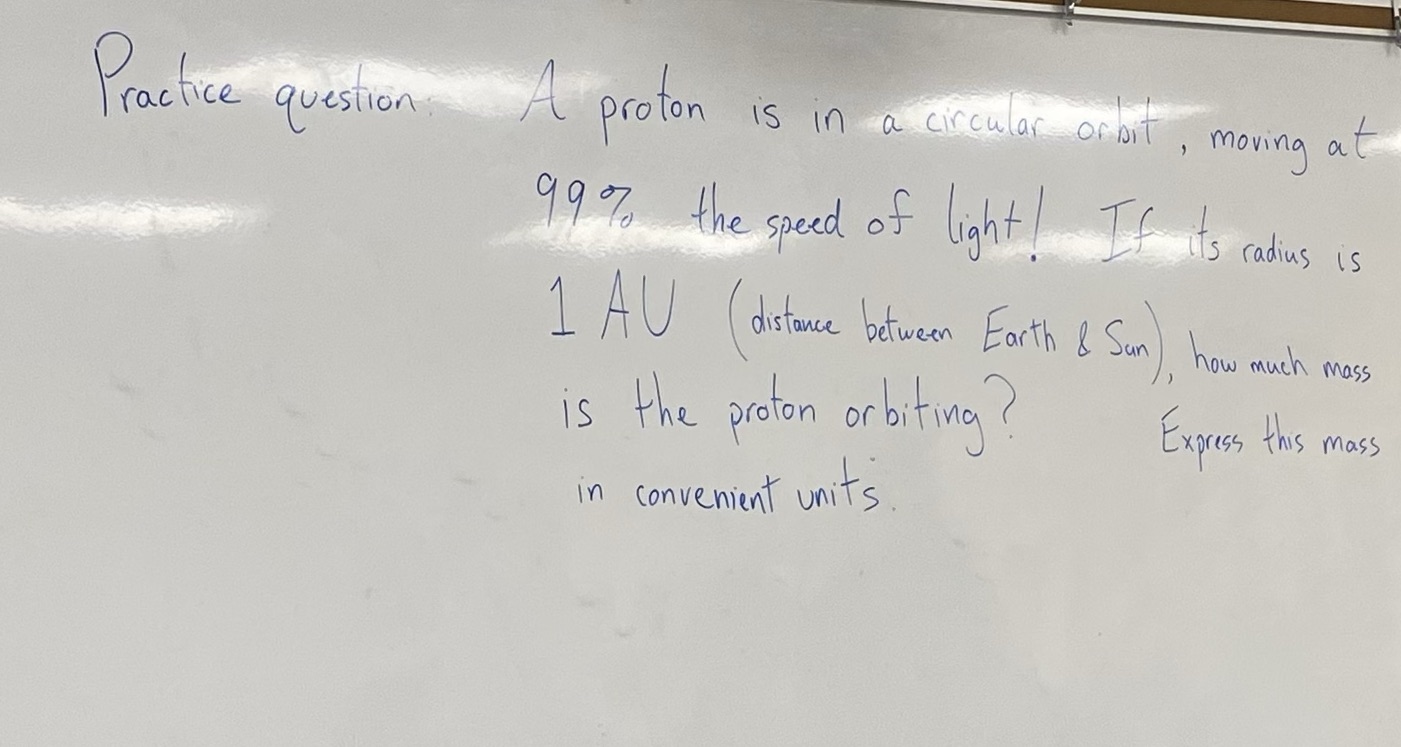 Practice question: A proton is in a circular orbit, moving at
99% the speed of light! If its radius is
1 AU (distance between Earth & Sun), how much mass
is the proton orbiting? Express this mass
in convenient units.